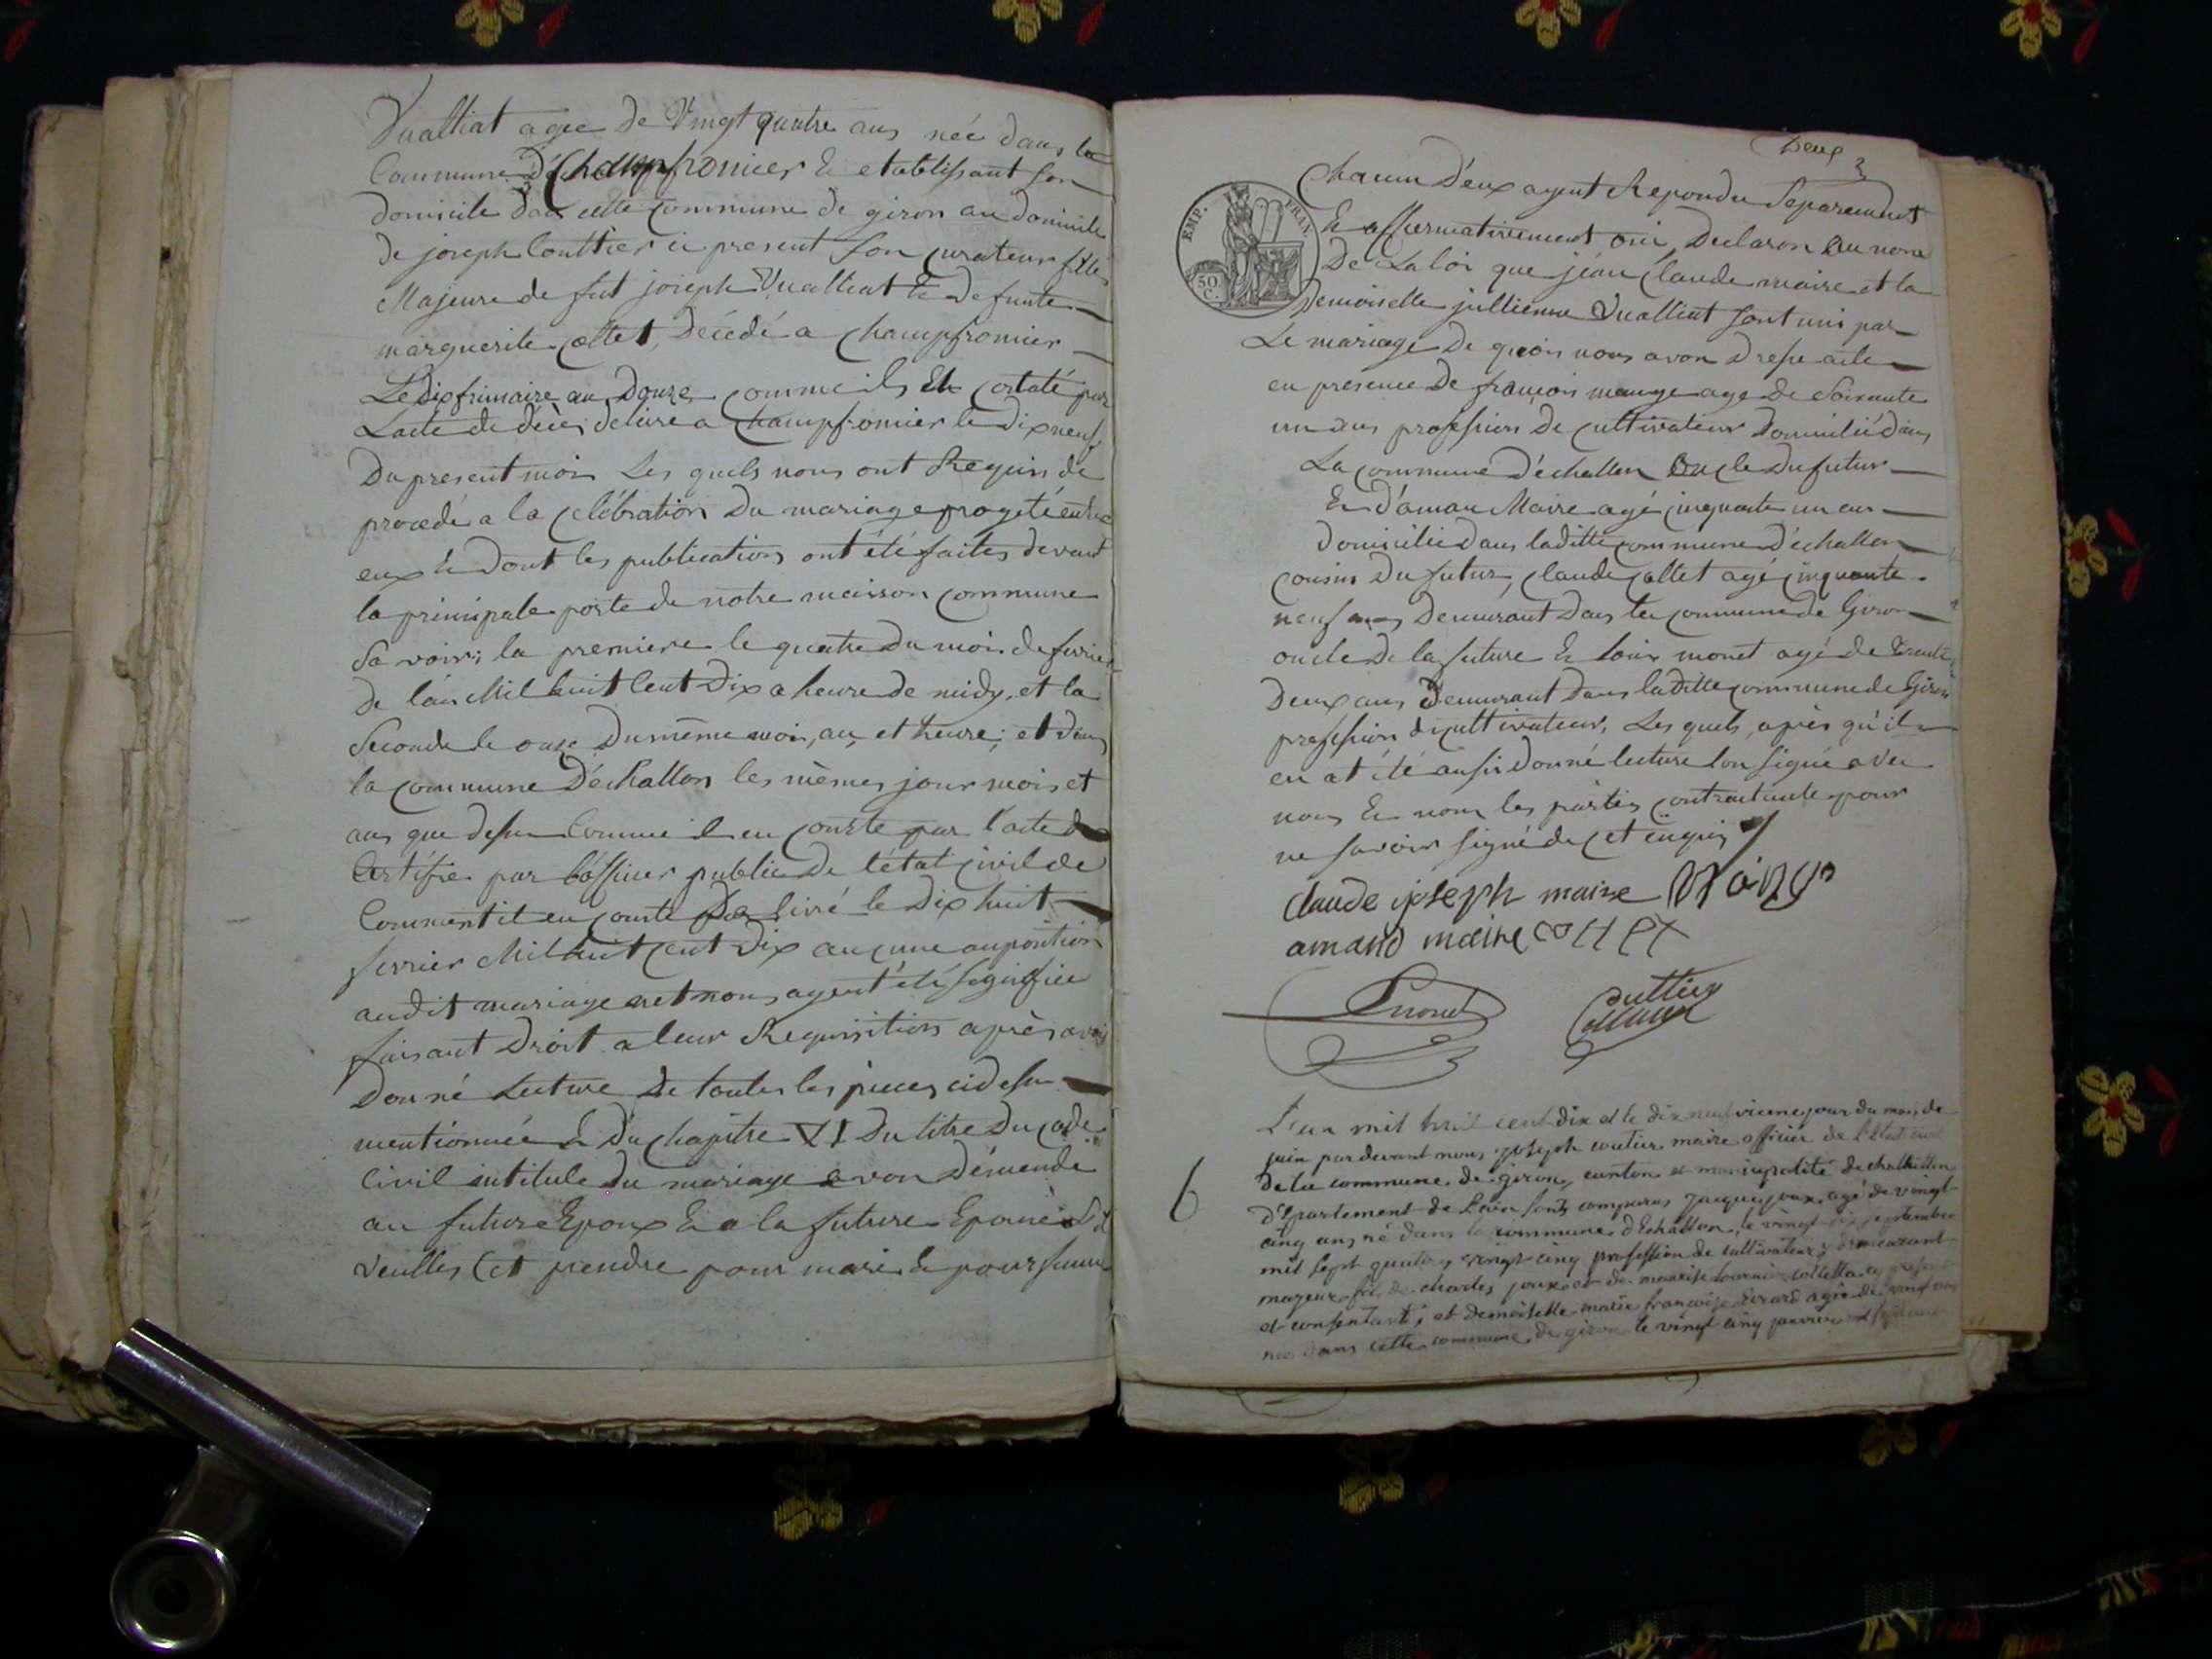 Vualliat agee de Vingt quatre ans née dans la
Commune De Champfromier & etablissant son
domicile dans cette commune de giron au domicile
de joseph Couttier ci present son curateur fille
Majeure de fut joseph Vualliat & defunte
marguerite collet, Décédé a Champfromier
Le dix frimaire an Douze comme ils Et costaté par
Lacte de décès délivré a Champfromier le dix neuf
Du present mois Les quels nous ont Requis de
procedé a la célébration du mariage progeté entre
eux & Dont les publications ont été faites devant
la principale porte de notre maison commune
Savoir; la premiere le quatre du mois de fevrier
de l'an Mil huit Cent Dix a heure de midy, et la
Seconde le onze Du même mois, an, et heure; et dans
la commune D'échallon les mêmes jour mois et
ans que dessu Comme il en conste par l'acte de
Certifié par l'officier public De l'état civil de
Comment il en conste Delivré le Dix huit
fevrier Mil huit cent Dix aucune auposition
audit mariage net nous ayent été signifiée
faisant Droit a leur Requisition après avoir
Donné Lecture De toutes les pieces cidessu
mentionnée & Du chapitre VI Du titre Du code
Civil intitule Du mariage avon Démende
au future Epoux & a la future Epouse s'il
veulles Cet prendre pour mari & pour femme
Deux
3
Chacun D'eux ayent Repondu Separement
& affiermativement oui, Declaron Au nom
De La loi que jéan Claude maire et la
Demoiselle jullienne Vualliat sont uni par
Le mariage De quoi nous avon Dresse acte
en presence De françois mange age De Soixante
un ans profession De cultivateur Domicilié dans
La commune d'échallon Oncle Du futur
& D'aman Maire agé cinquante un an
Domicilié dans laditte commune d'échallon
cousin Du futur, Claude Collet agé cinquante
neuf ans Demeurant Dans la commune de Giron
oncle De la future & louis monet agé de trente
Deux ans Demeurant Dans laditte commune de Giron
profession de cultivateur, Les quels, après qu'il
en at été aussi Donné lecture l'on signé avec
nous & non les parties contractante pour
ne savoir signé de cet enquis
EMP. FRAN.
50 C.
claude joseph maire
amand maire collet
L monet
Couttier
maire
6
L'an mil huit cent dix et le dix neufvieme jour du mois de
juin par devant nous joseph coutier maire officier de l'état civil
De la commune de giron, canton et municipalité de chattillon
d'épartement de L'ain sont comparus jacque joux, agé de vingt
cinq ans né dans la commune d'Echallon, le vingt six septembre
mil sept quatre vingt cinq profession de cultivateur y demeurant
mageur fils de charles joux et de
et consentant; et demoiselle marie françoise Evrard agée de vingt ans
née dans cette commune, de giron le vingt cinq janvier